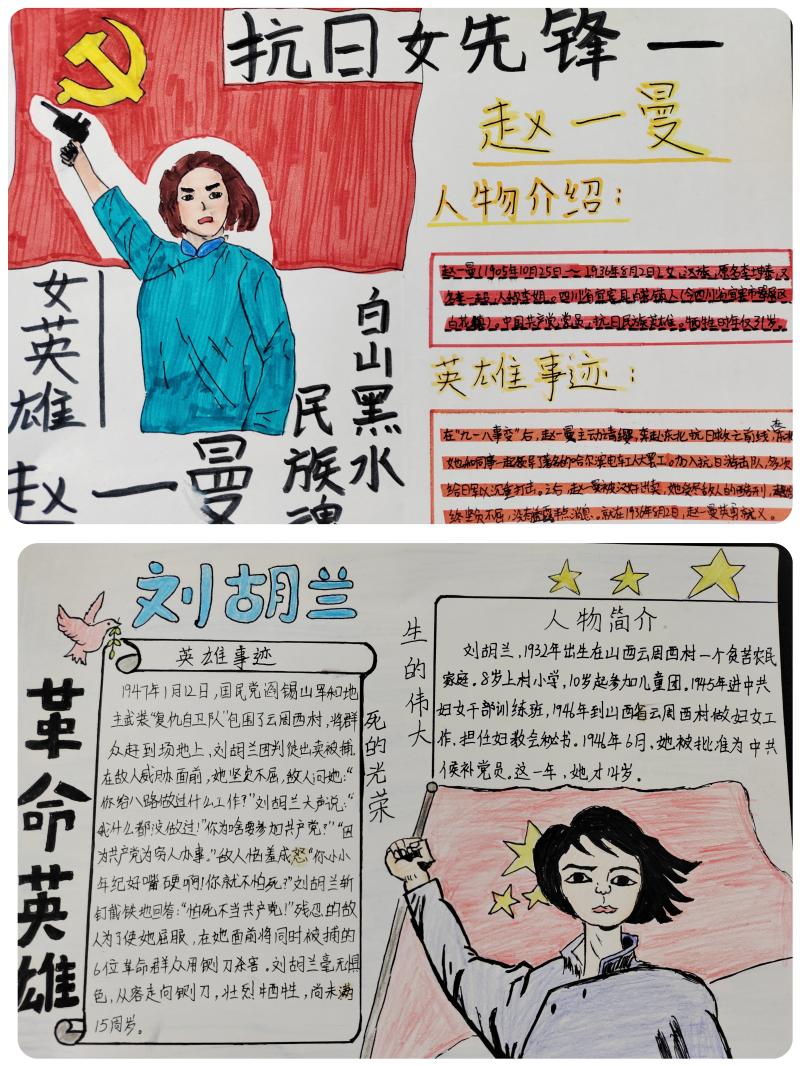 抗日女先锋一
赵一曼
人物介绍：
赵一曼(1905年10月25日～1936年8月2日)，女，汉族，原名李坤泰，又
名李一超，人称李姐。四川省宜宾县白花镇人(今四川省宜宾市翠屏区
白花镇)。中国共产党党员，抗日民族英雄。牺牲时年仅31岁。
英雄事迹：
在"九一八事变"后，赵一曼主动请缨，奔赴东北抗日救亡前线，东北
她和同事一起领导了著名的哈尔滨电车工人大罢工。加入抗日游击队，多次
给日军以沉重打击。之后，赵一曼被汉奸出卖，她受尽敌人的酷刑，
终坚贞不屈，没有半点消息。就在1936年8月2日，赵一曼英勇就义。
女英雄
赵一曼
白山黑水
民族魂
刘胡兰
革命英雄
英雄事迹
1947年1月12日，国民党阎锡山军和地
主武装"复仇自卫队"包围了云周西村，将群
众赶到场地上，刘胡兰因叛徒出卖被捕。
在敌人威胁面前，她坚贞不屈，敌人问她："
你给八路做过什么工作？"刘胡兰大声说："
我什么都没做过！"你为啥要参加共产党？""因
为共产党为穷人办事。"敌人恼羞成怒"你小小
年纪好嘴硬啊！你就不怕死？"刘胡兰斩
钉截铁地回答："怕死不当共产党！"残忍的敌
人为了使她屈服，在她面前将同时被捕的
6位革命群众用铡刀杀害。刘胡兰毫无惧
色，从容走向铡刀，壮烈牺牲，尚未满
15周岁。
生的伟大
死的光荣
人物简介
刘胡兰，1932年出生在山西云周西村一个贫苦农民
家庭。8岁上村小学，10岁起参加儿童团。1945年进中共
妇女干部训练班，1946年到山西省云周西村做妇女工
作，担任妇救会秘书。1946年6月，她被批准为中共
候补党员。这一年，她才14岁。